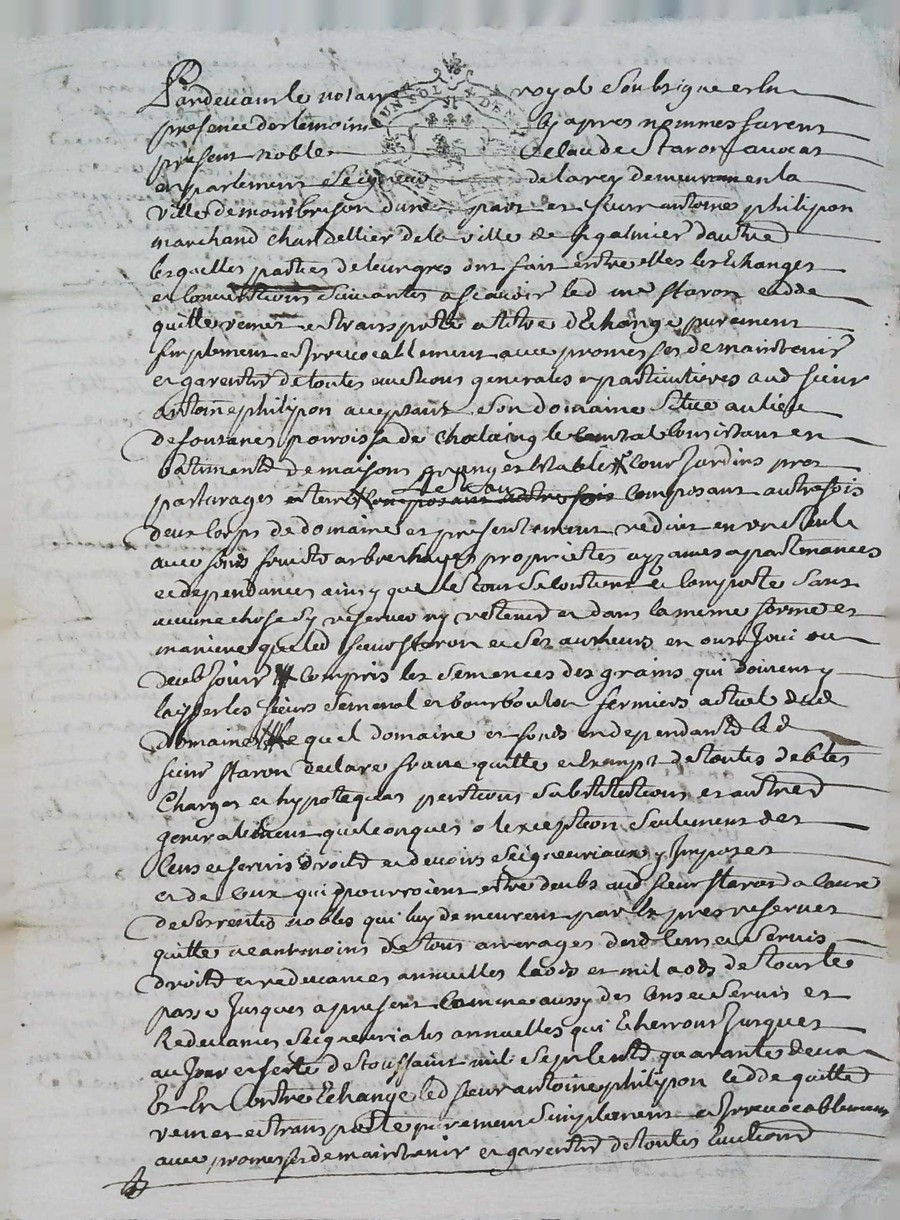 Pardevant le notaire royal soubsigné et en
presence des temoins cy apres nommes furent
present noble Claude Staron avocat
en parlement seigneur de larey demeurant en la
ville de montbrison dune part et sieur antoine philipon
marchand chandellier de la ville de st galmier dautre
lesquelles parties de leur gres ont fait entre elles les Echanges
et conventions suivantes ascavoir led me staron cedde
quitte remet et transporte a titre dEchange purement
simplement et Irrevocablement avec promesses de maintenir
et garentir de toutes evictions generales et particulieres aud sieur
antoine philipon acceptant son domaine situé au lieu
de fontanes parroisse de chalaing le comtal consistant en
batiments de maisons granges Estables cour Jardins prés
pasturages et terres composant autrefois composant autrefois
deux corps de domaine et presentement reduit en un seul
avec fonds fruits arbres hayes proprietes aizances apartenances
et dependances ainsy que le tout se contient et comporte sans
aucune chose sy reserver ny retenir et dans la meme forme et
maniere que led sieur staron et ses autheurs en ont Joui ou
deub Jouir compris les semences des grains qui doivent y
laisser les sieurs semenol et bourboulon fermiers actuel dud
domaine lequel domaine et fonds en dependants led
sieur staron declare franc quitte et Exempt de toutes debtes
Charges et hypoteques pentions substitutions et autres
generallement quelconques a lexception seulement des
Cens et servis droits et devoirs seigneuriaux y Imposes
et de Ceux qui pourroient estre deubs aud sieur staron a cause
de ses rentes nobles qui luy demeurent par Expres reserves
quitte neantmoins de tous arrerages desd Cens et servis
droits et redevances annuelles laods et mil aods de tout le
passé Jusques a present Comme aussy des Cens et servis et
Redevances seigneuriales annuelles qui Echerront Jusques
au Jour et feste de toussaint mil sept Cents quarante deux
Et En Contre Echange led sieur antoine philipon cedde quitte
remet et transporte purement simplement et Irrevocablement
avec promesses de maintenir et garentir de toutes Evictions